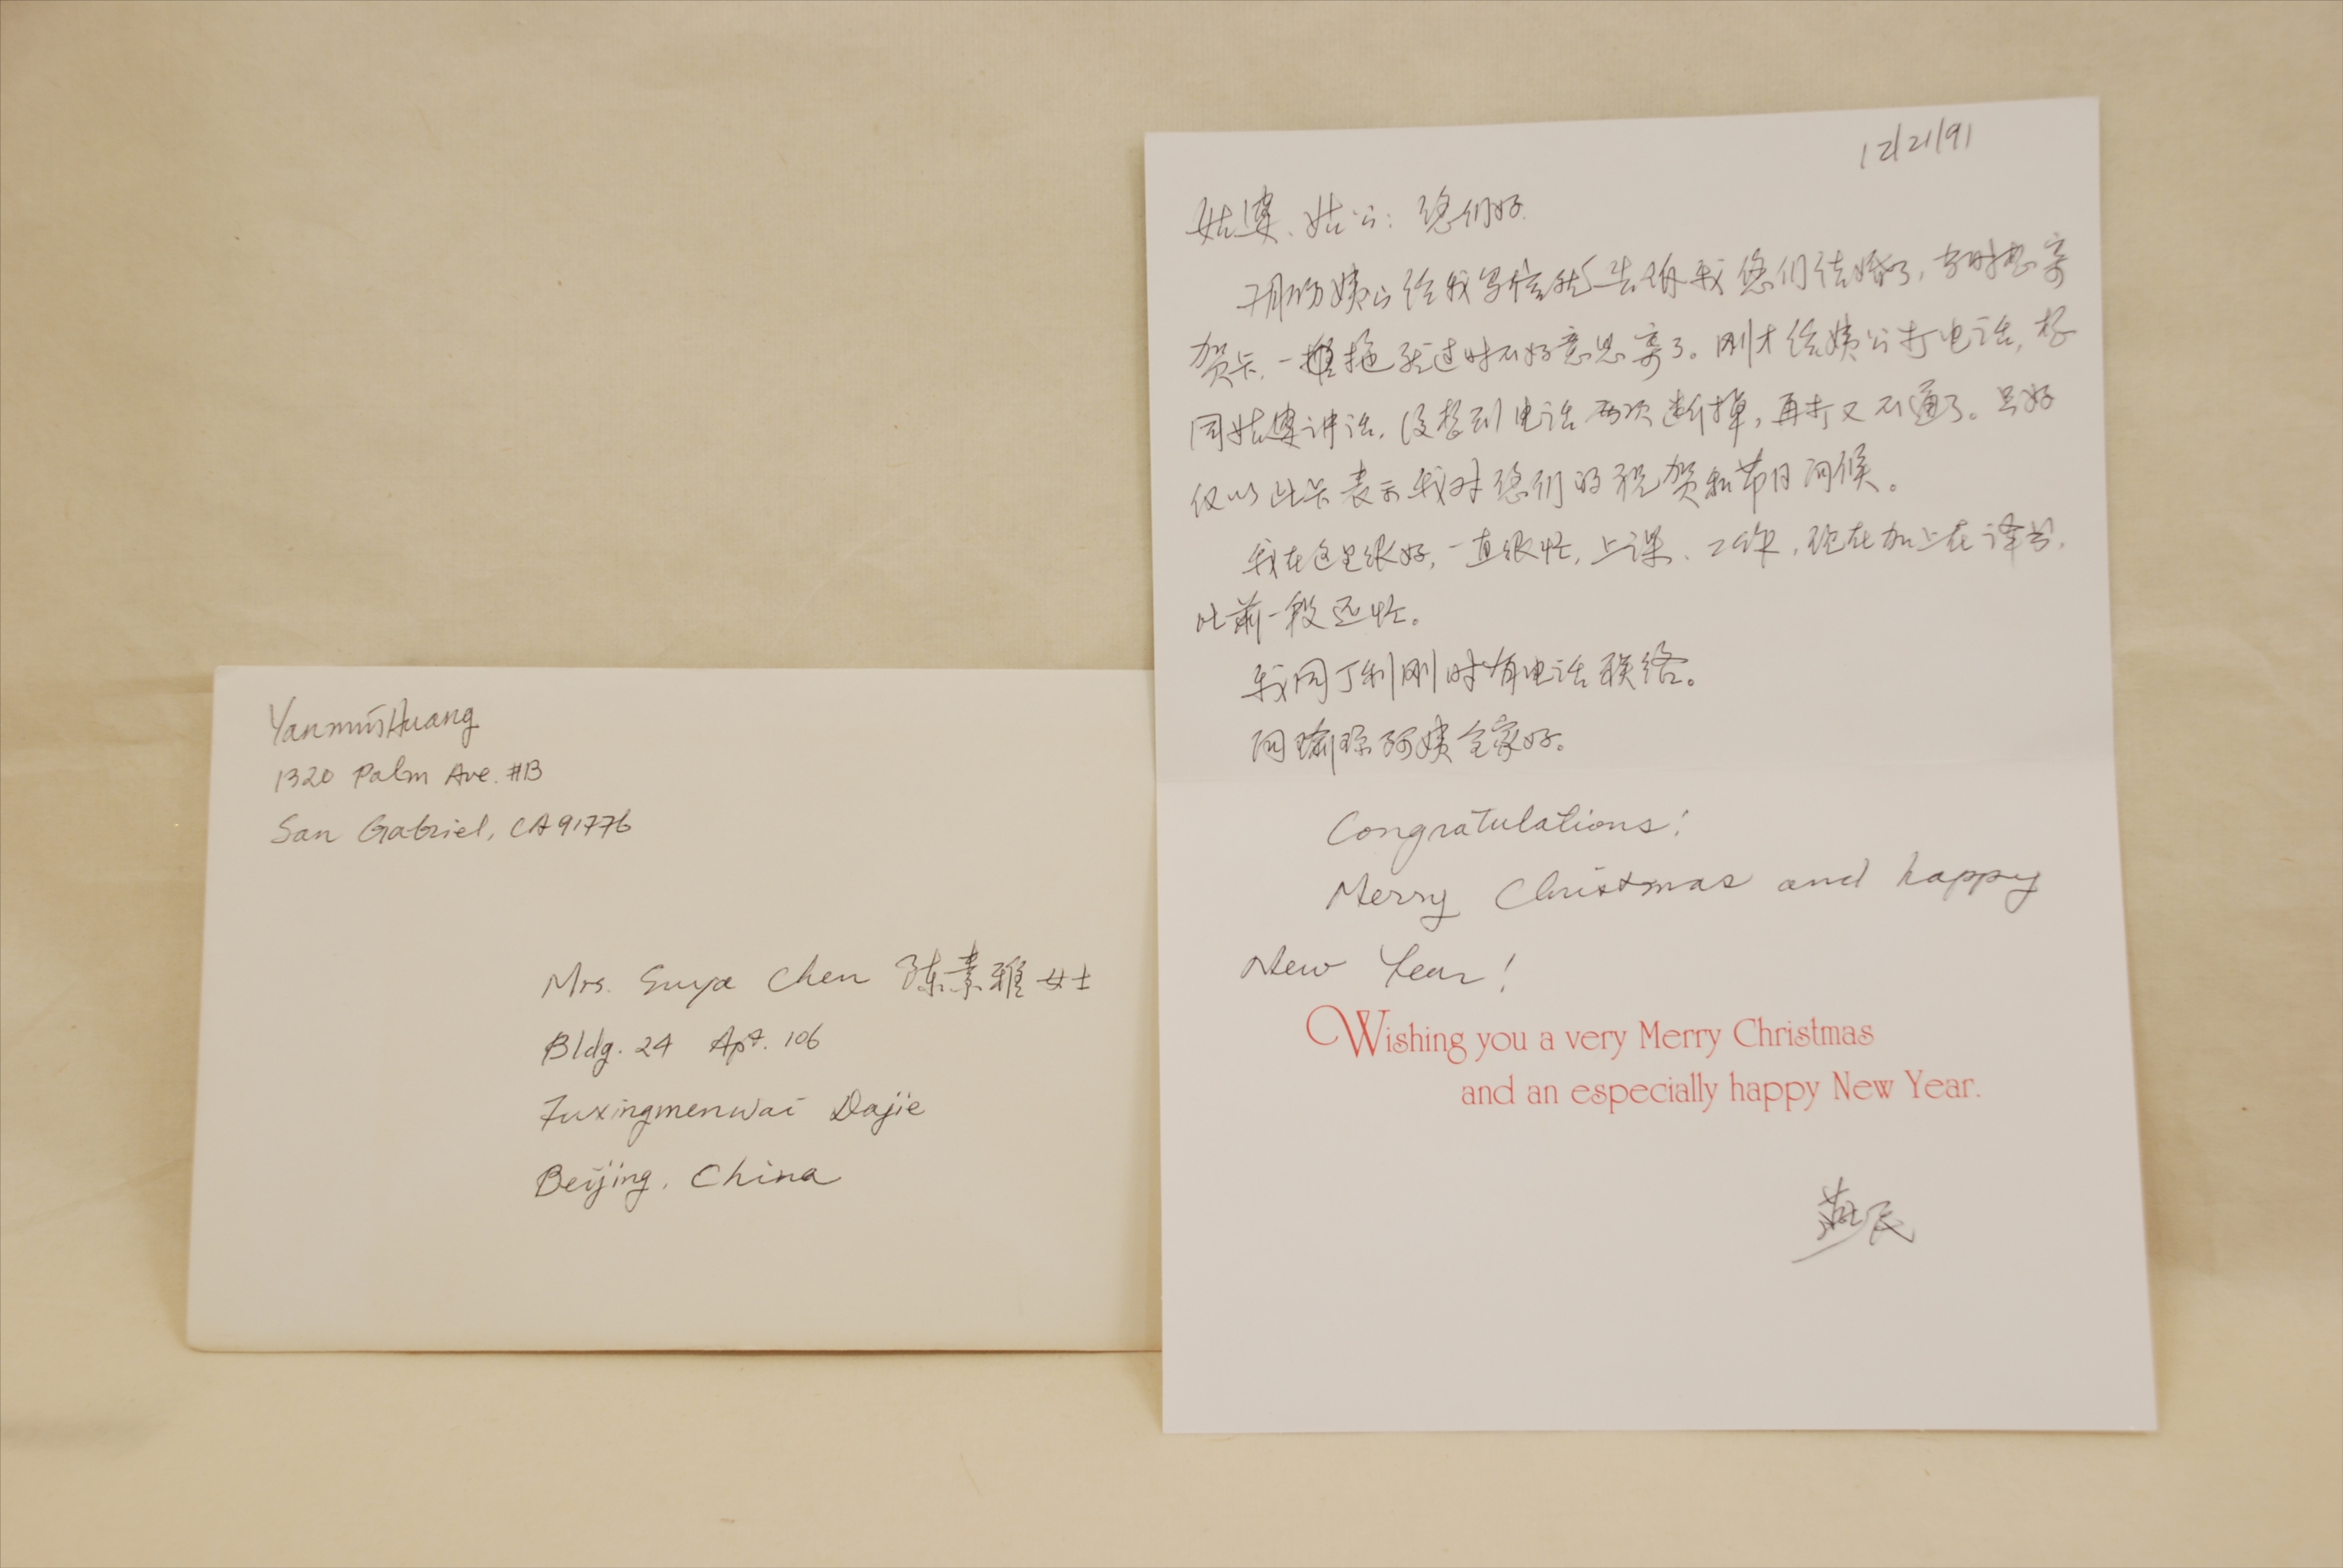 Yanmin Huang
1320 Palm Ave. #B
San Gabriel, CA 91776
Mrs. Suya Chen 陈素雅女士
Bldg. 24 Apt. 106
Fuxingmenwai Dajie
Beijing, China
12/21/91
姑婆、姑公：您们好.
7月份姨公给我写信就告诉我您们结婚了，当时想寄
贺卡，一推拖就过时不好意思寄了。刚才给姨公打电话，想
同姑婆讲话，没想到电话两次断掉，再打又不通了。只好
仅以此卡表示我对您们的祝贺和节日问候。
我在这里很好，一直很忙，上课、工作，现在加上在译书，
比前一段还忙。
我同丁利刚时有电话联络。
问瑜琼阿姨全家好。
Congratulations!
Merry Christmas and happy
New Year!
Wishing you a very Merry Christmas
and an especially happy New Year.
燕民